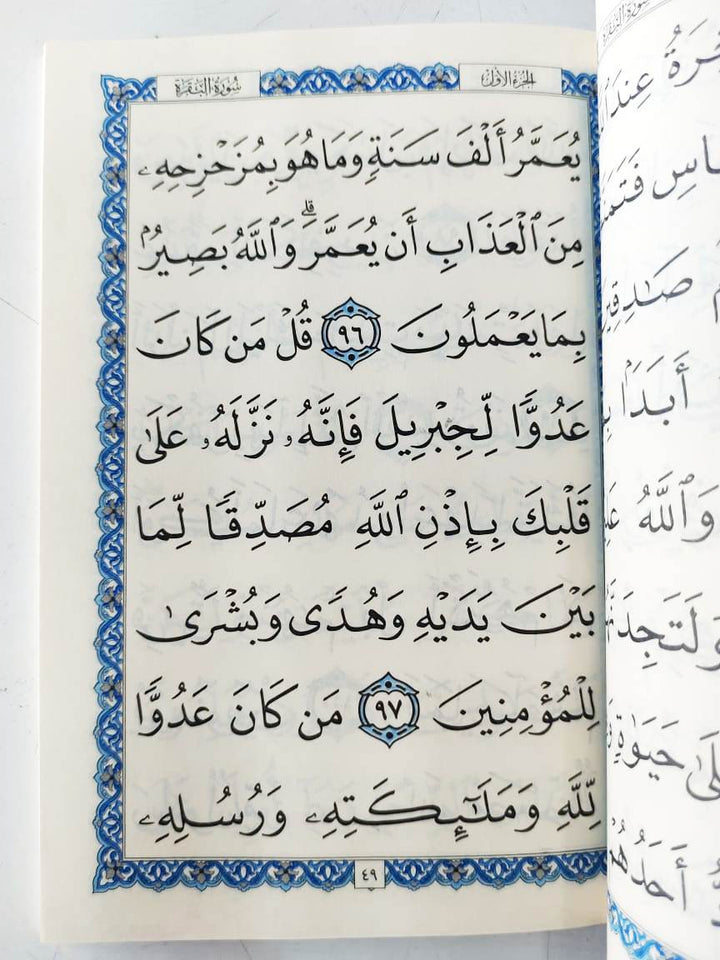 سُورَةُ البَقَرَة
الجُزءُ الأوّل
يُعَمَّرُ أَلۡفَ سَنَةٖ وَمَا هُوَ بِمُزَحۡزِحِهِۦ
مِنَ ٱلۡعَذَابِ أَن يُعَمَّرَۗ وَٱللَّهُ بَصِيرُۢ
بِمَا يَعۡمَلُونَ ٩٦ قُلۡ مَن كَانَ
عَدُوّٗا لِّجِبۡرِيلَ فَإِنَّهُۥ نَزَّلَهُۥ عَلَىٰ
قَلۡبِكَ بِإِذۡنِ ٱللَّهِ مُصَدِّقٗا لِّمَا
بَيۡنَ يَدَيۡهِ وَهُدٗى وَبُشۡرَىٰ
لِلۡمُؤۡمِنِينَ ٩٧ مَن كَانَ عَدُوّٗا
لِّلَّهِ وَمَلَٰٓئِكَتِهِۦ وَرُسُلِهِۦ
٤٩
سُورَةُ البَقَرَة
عِندَ
صَٰدِقِينَ
أَبَدَۢا
وَٱللَّهُ
حَيَوٰةٖ
أَحَدُهُمۡ